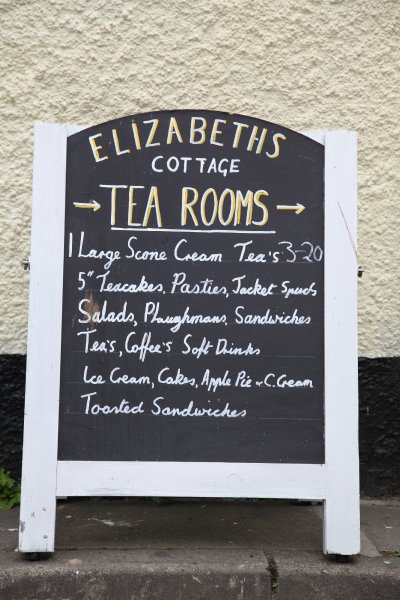 ELIZABETHS
COTTAGE
→ TEA ROOMS →
1 Large Scone Cream Tea's 3-20
5" Teacakes, Pasties, Jacket Spuds
Salads, Ploughmans, Sandwiches
Tea's, Coffee's Soft Drinks
Ice Cream, Cakes, Apple Pie & C. Cream
Toasted Sandwiches